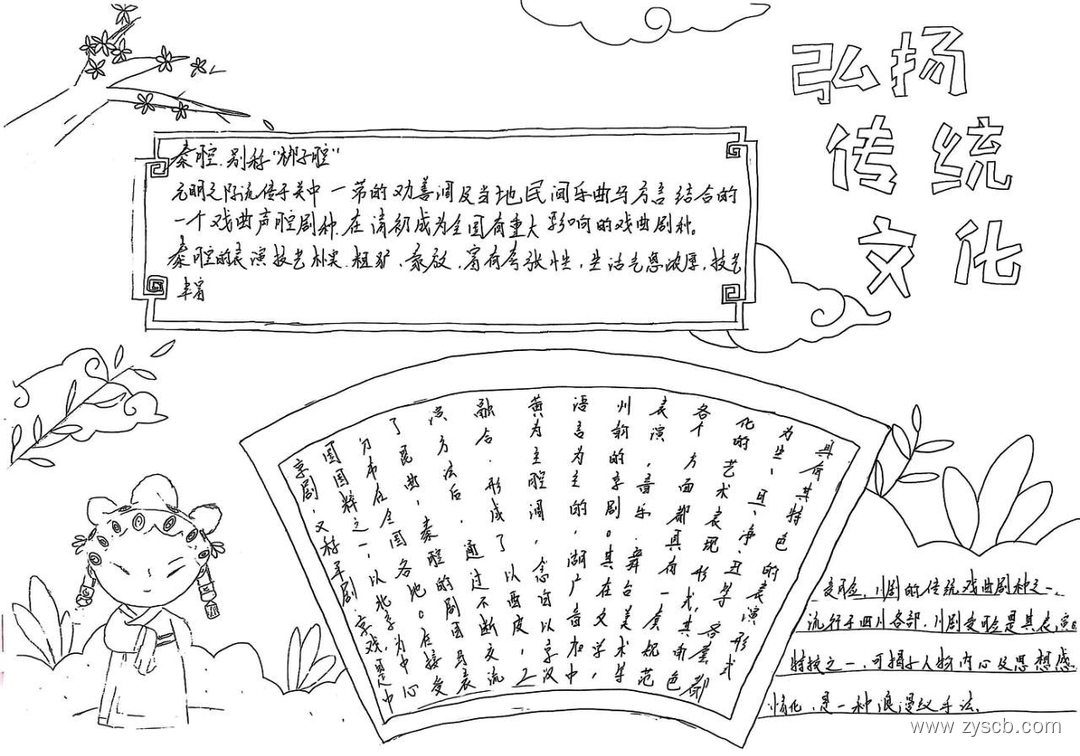 弘扬
传统
文化
秦腔.别称“梆子腔”
元明之际流传于关中一带的劝善调及当地民间乐曲与方言结合的
一个戏曲声腔剧种.在清初成为全国有重大影响的戏曲剧种。
秦腔的表演技艺朴实.粗犷、豪放,富有夸张性,生活气息浓厚,技艺
丰富
京剧,又称平剧、京戏,是中
国国粹之一,以北京为中心
分布在全国各地。在接受
了昆曲,秦腔的剧目、表
演方法后,通过不断交流
融合.形成了以西皮,二
黄为主腔调,念白以京汉
语言为主的,湖广音加中
州韵的京剧。其在文学,
表演,音乐.舞台美术等
各个方面都具有一套规范
化的艺术表现形式,其角色
为生、旦、净、丑等.各都
具有其特色的表演形式
变脸,川剧的传统戏曲剧种之一。
流行于四川各部,川剧变脸是其表演
特技之一,可揭于人物内心及思想感
情化,是一种浪漫手法.
www.zyscb.com